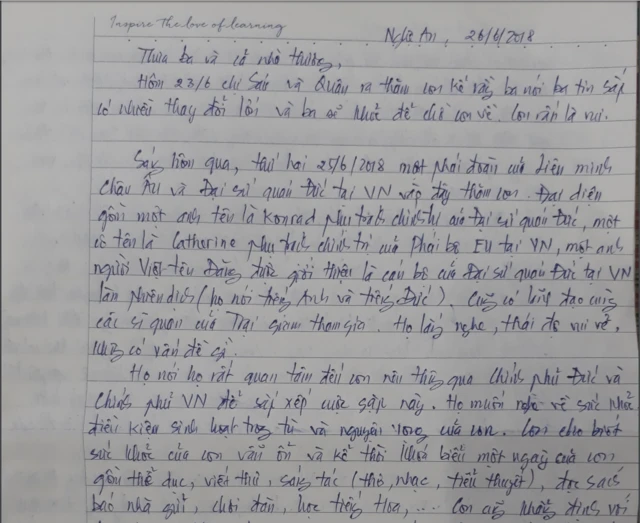 Inspire the love of learning
Nghệ An, 26/6/2018
Thưa ba và cả nhà thương,
Hôm 23/6 chị Sáu và Quân ra thăm con kể rằng ba nói ba tin sắp
có nhiều thay đổi lớn và ba sẽ khỏe để chờ con về. Con rất là vui.
Sáng hôm qua, thứ hai 25/6/2018 một phái đoàn của Liên minh
Châu Âu và Đại sứ quán Đức tại VN vào đây thăm con. Đại diện
gồm một anh tên là Konrad phụ trách chính trị của Đại sứ quán Đức, một
cô tên là Catherine phụ trách chính trị của Phái bộ EU tại VN, một anh
người Việt tên Đăng được giới thiệu là cán bộ của Đại sứ quán Đức tại VN
làm phiên dịch (họ nói tiếng Anh và tiếng Đức). Cũng có lãnh đạo cùng
các sĩ quan của Trại giam tham gia. Họ lắng nghe, thái độ vui vẻ,
không có vấn đề gì.
Họ nói họ rất quan tâm đến con nên thông qua Chính phủ Đức và
Chính phủ VN để sắp xếp cuộc gặp này. Họ muốn nghe về sức khỏe
điều kiện sinh hoạt trong tù và nguyện vọng của con. Con cho biết
sức khỏe của con vẫn ổn và kể thời khóa biểu một ngày của con
gồm thể dục, viết thư, sáng tác (thơ, nhạc, tiểu thuyết), đọc sách
báo nhà gửi, chơi đàn, học tiếng Hoa, ... Con cũng khẳng định với